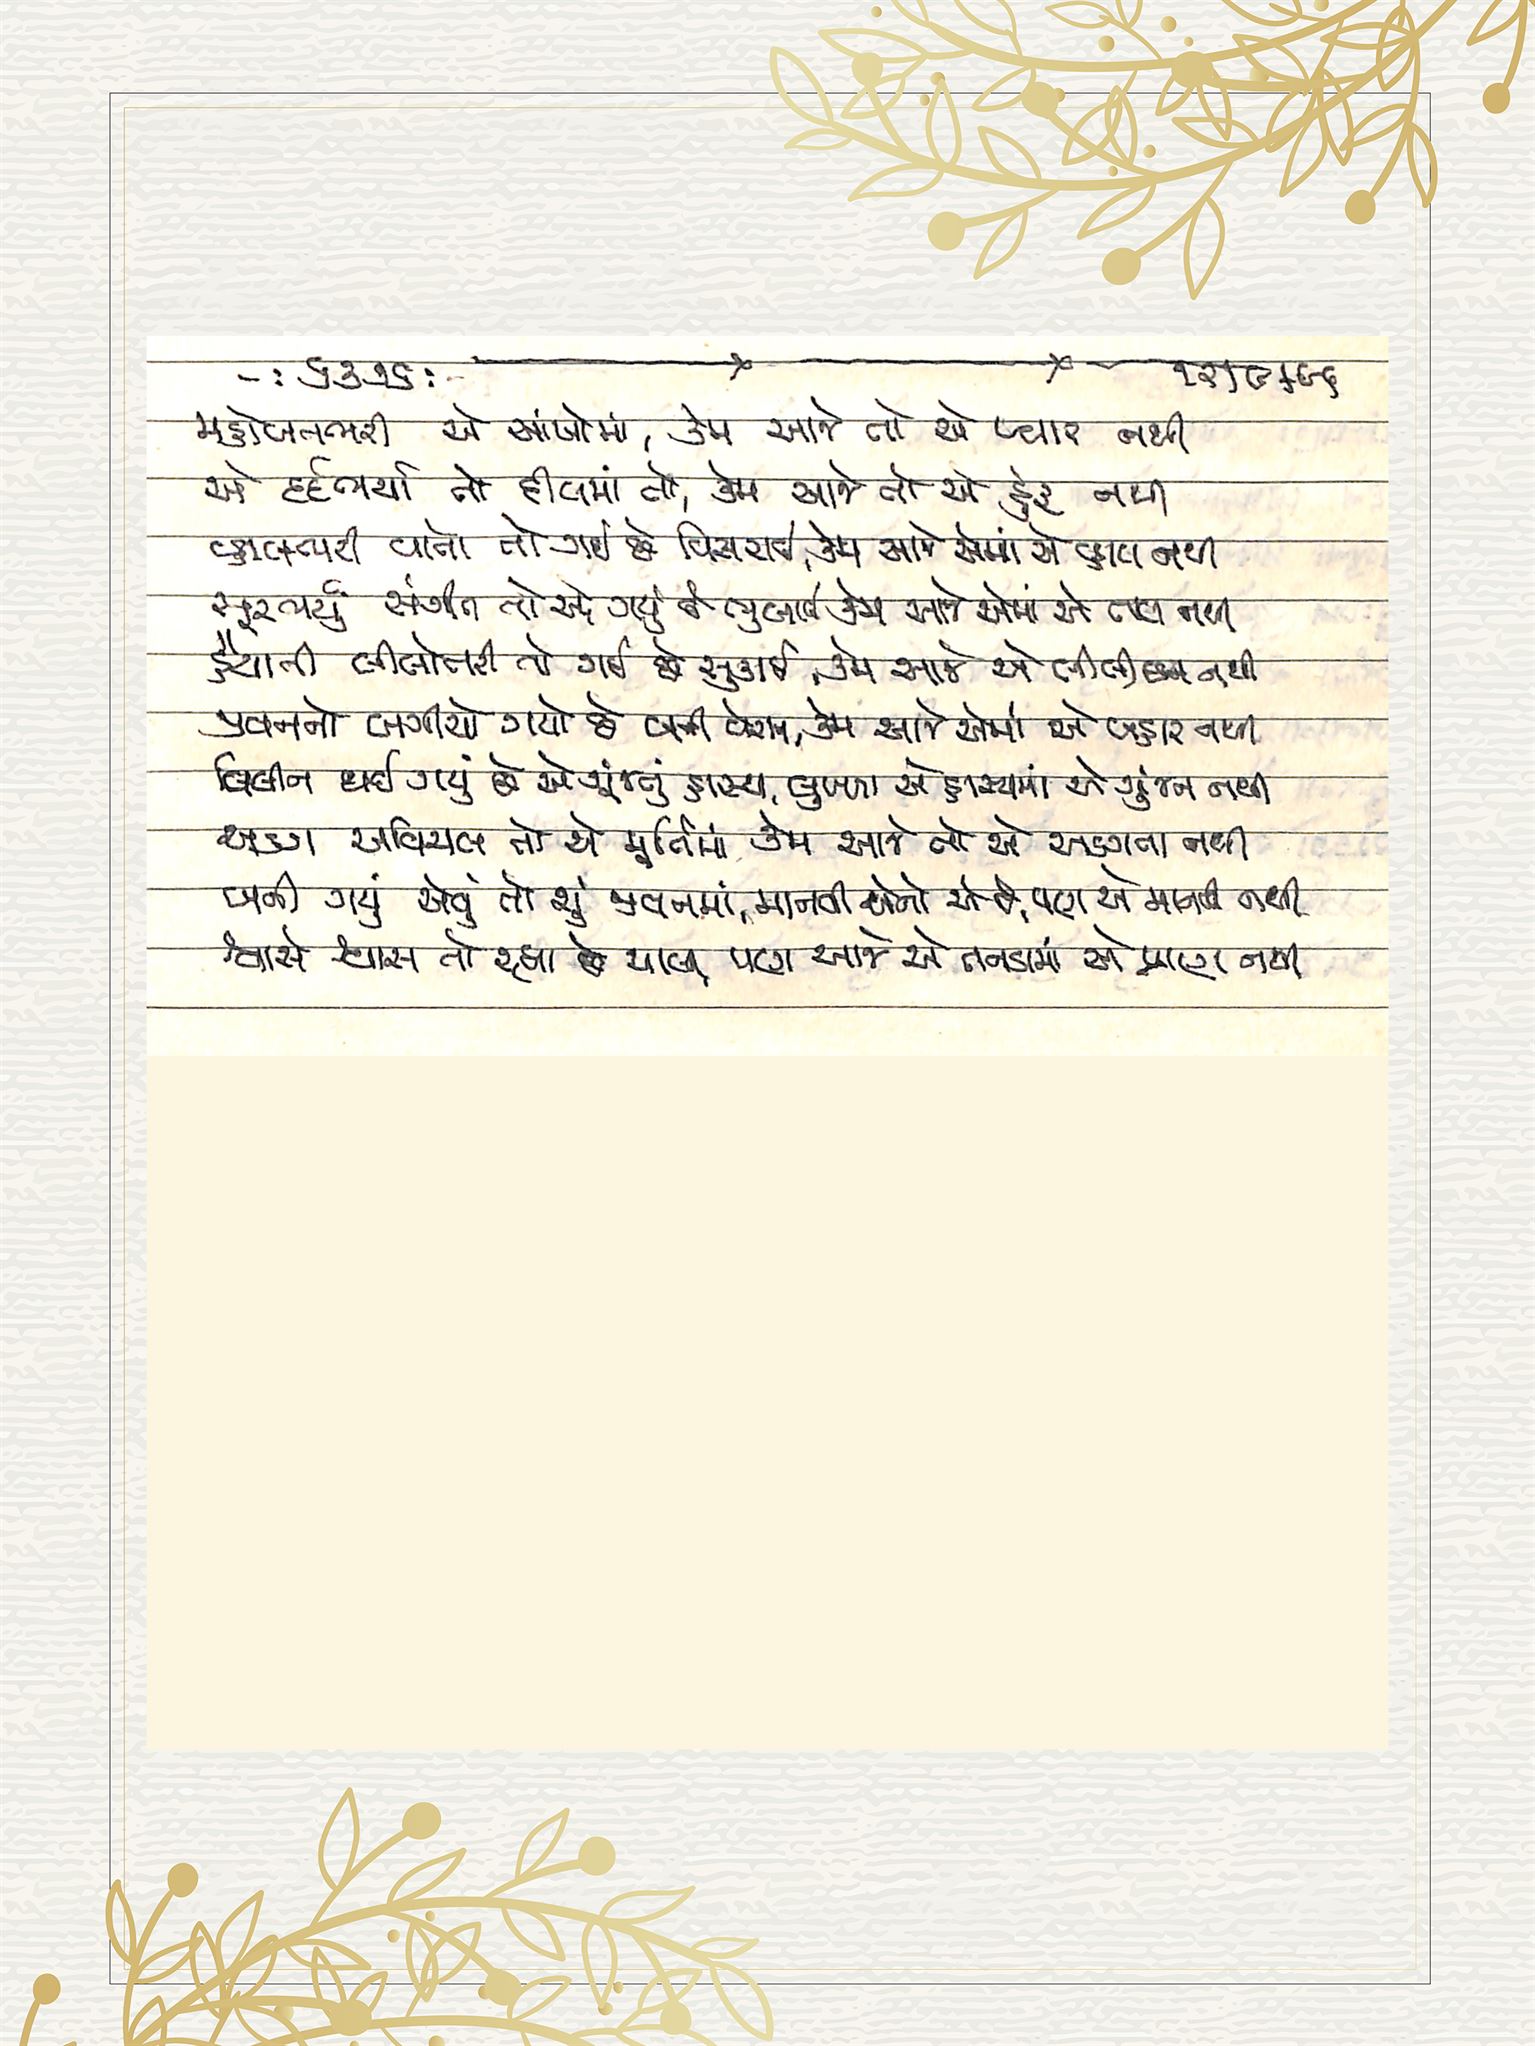 -: ૬૩૧૬ :-
મહોબતભરી એ આંખોમાં, કેમ આજે તો એ પ્યાર નથી
એ દર્દભર્યા તો દીલમાં તો, કેમ આજે તો એ નથી
વ્હાલભરી વાતો તો ગઈ છે વિસરાઈ, કેમ આજે એમાં એ વ્હાલ નથી
સૂરભર્યું સંગીત તો એ ગયું છે ભુલાઈ કેમ આજે એમાં એ તાલ નથી
હૈયાની લીલોતરી તો ગઈ છે સુકાઈ, કેમ આજે એ લીલીછમ નથી
જીવનનો બગીચો ગયો છે બની વેરાન, કેમ આજે એમાં એ બહાર નથી
વિલીન થઈ ગયું છે એ ગૂંજનું હાસ્ય, લુખ્ખા એ હાસ્યમાં એ ગુંજન નથી
અડગ અવિચલ તો એ મૂર્તિમાં કેમ આજે તો એ અડગતા નથી
બની ગયું એવું તો શું જીવનમાં, માનવી એનો એ છે, પણ એ માનવી નથી
શ્વાસે શ્વાસ તો રહ્યા છે ચાલુ, પણ આજે એ તનડામાં એ પ્રાણ નથી